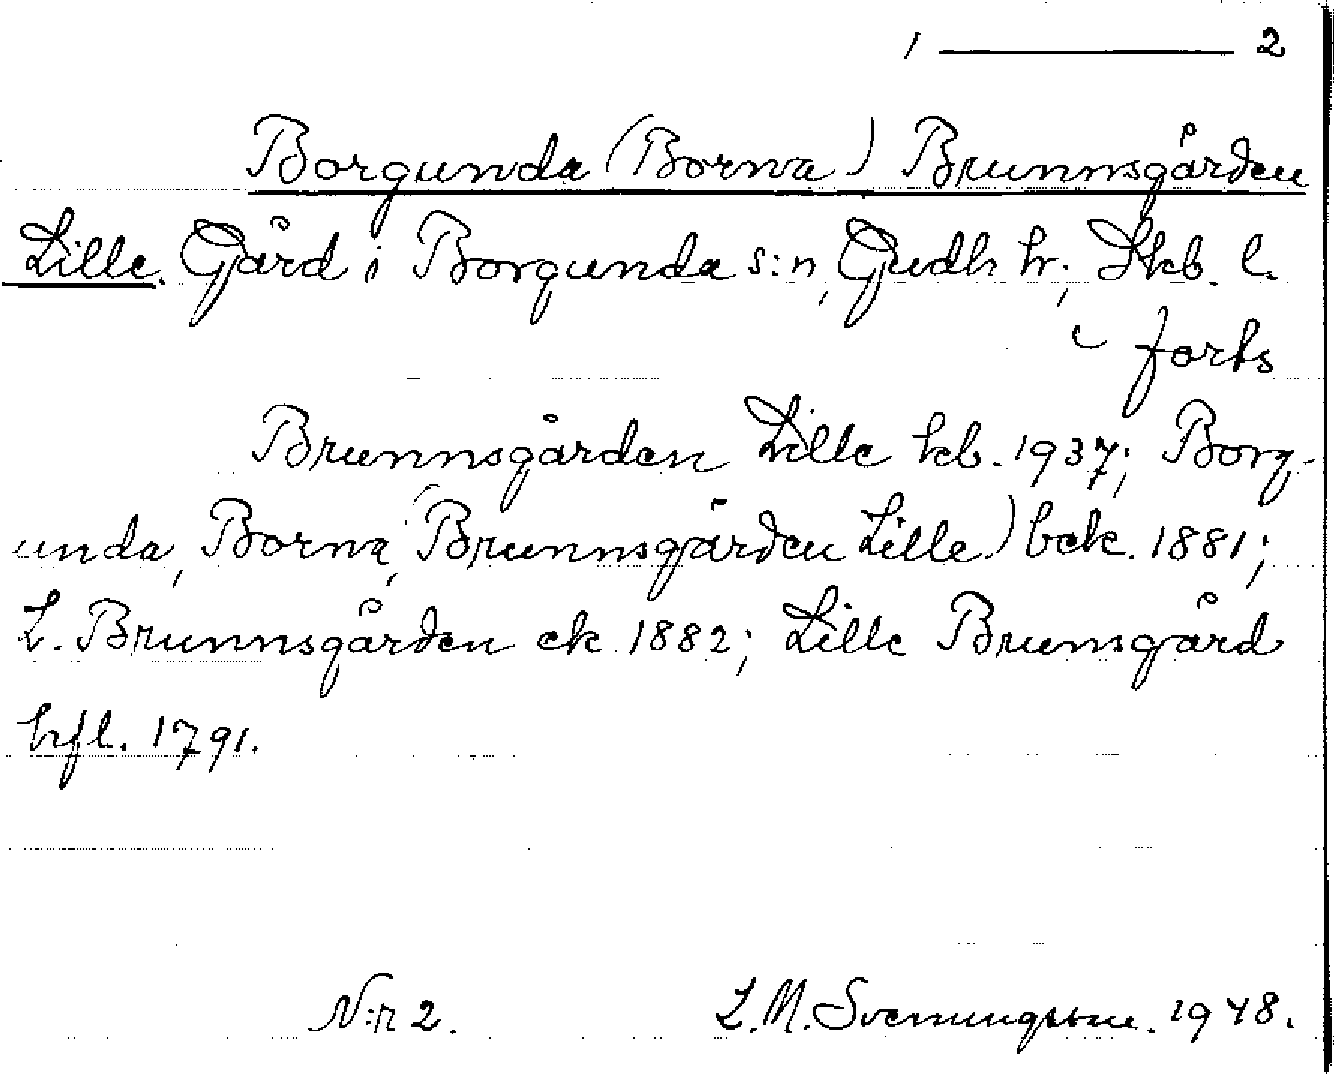 1 ——— 2
Borgunda (Borna) Brunnsgården
Lille. Gård i Borgunda s:n, Gudh. hr; Skb. l.
forts
Brunnsgården Lille kb. 1937; Borg-
unda, Borna, (Brunnsgården Lille) bek. 1881;
L. Brunnsgården ek. 1882; Lille Brunsgård
hfl. 1791.
N:r 2. L. M. Svenungsson. 1948.